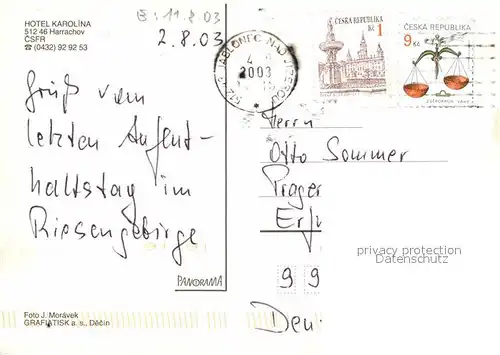 HOTEL KAROLÍNA
512 46 Harrachov
ČSFR
☎ (0432) 92 92 53
E: 11.8.03
2.8.03
Gruß vom
letzten Aufent-
haltstag im
Riesengebirge
PANORAMA
Foto J. Morávek
GRAFIATISK a. s., Děčín
JABLONEC NAD JIZEROU
2003
ČESKÁ REPUBLIKA
1
ČESKÁ REPUBLIKA
9 Kč
Herrn
Otto Sommer
Prager
Erfu
privacy protection
Datenschutz
9 9
Deu